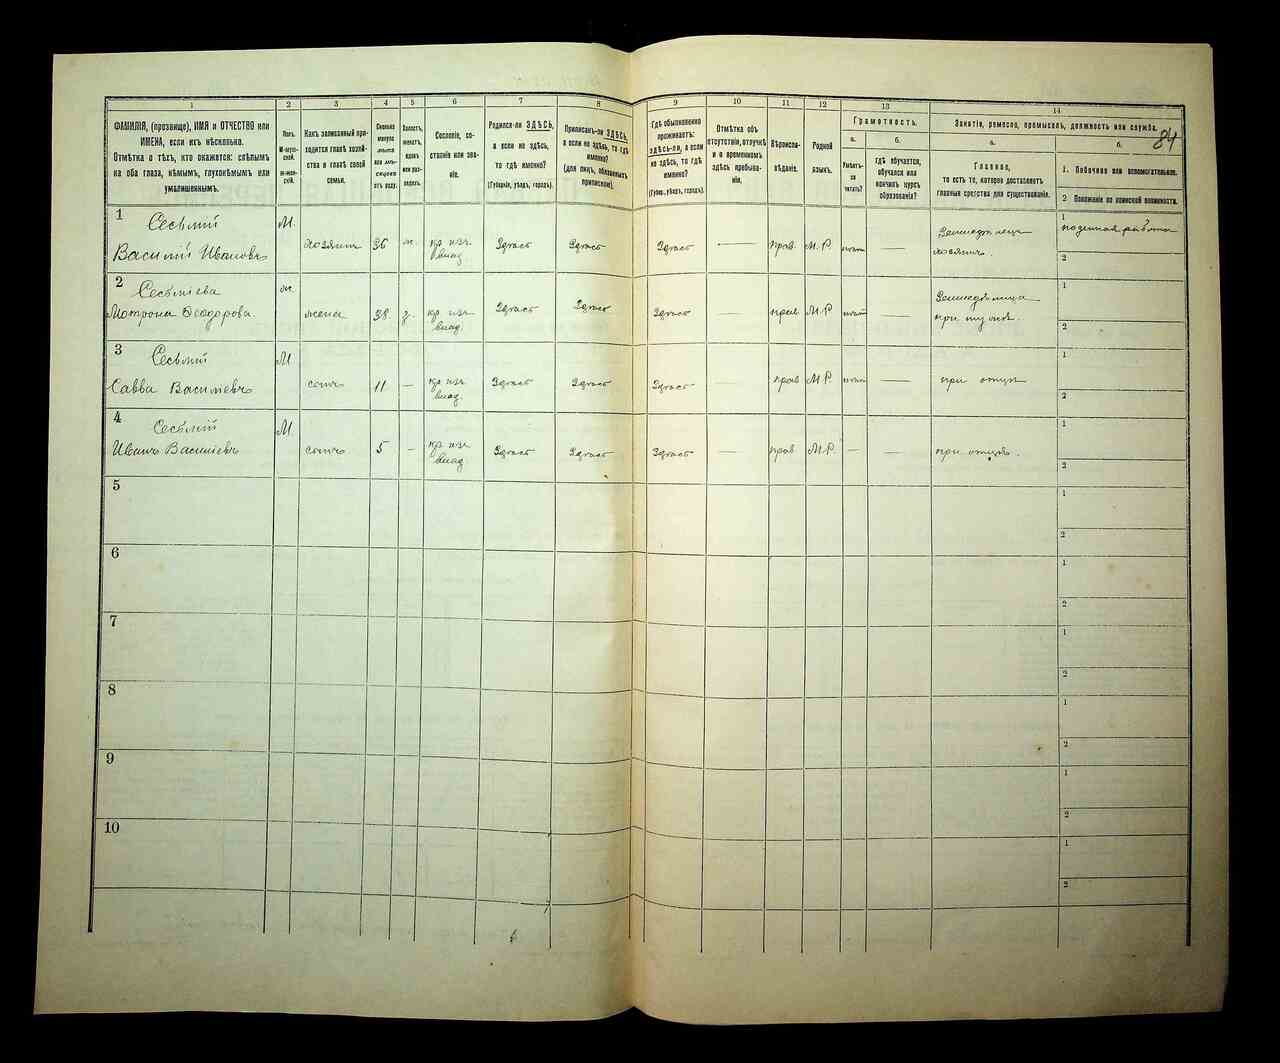 1
2
3
4
5
6
7
8
9
10
11
12
13
14
ФАМИЛІЯ, (прозвище), ИМЯ и ОТЧЕСТВО или
ИМЕНА, если ихъ нѣсколько.
Отмѣтка о тѣхъ, кто окажется: слѣпымъ
на оба глаза, нѣмымъ, глухонѣмымъ или
умалишеннымъ.
Полъ.
М-муж-
ской.
Ж-жен-
скій.
Какъ записанный при-
ходится главѣ хозяй-
ства и главѣ своей
семьи.
Сколько
минуло
лѣтъ
или мѣ-
сяцевъ
отъ роду.
Холостъ,
женатъ,
вдовъ
или раз-
веденъ.
Сословіе, со-
стояніе или зва-
ніе.
Родился-ли ЗДѢСЬ,
а если не здѣсь,
то гдѣ именно?
(Губернія, уѣздъ, городъ).
Приписанъ-ли ЗДѢСЬ,
а если не здѣсь, то гдѣ
именно?
(для лицъ, обязанныхъ
припиской).
Гдѣ обыкновенно
проживаетъ:
здѣсь-ли, а если
не здѣсь, то гдѣ
именно?
(Губерн., уѣздъ, городъ).
Отмѣтка объ
отсутствіи, отлучкѣ
и о временномъ
здѣсь пребыва-
ніи.
Вѣроиспо-
вѣданіе.
Родной
языкъ.
Грамотность.
а.
б.
Умѣетъ-
ли
читать?
гдѣ обучается,
обучался или
кончилъ курсъ
образованія?
Занятіе, ремесло, промыселъ, должность или служба.
84
а.
б.
Главное,
то есть то, которое доставляетъ
главныя средства для существованія.
1. Побочное или вспомогательное.
2 Положеніе по воинской повинности.
1 Сесьмий М.
Василій Ивановъ хозяинъ 36 ж. кр изъ владѣ Здѣсь Здѣсь Здѣсь — прав. М.Р. — Земледѣлецъ хозяинъ.
1 поденная работа
2
2 ж.
Мотрона Ѳеодорова. жена 38 з. кр изъ Здѣсь Здѣсь Здѣсь — прав М.Р — при мужѣ.
1
2
3 Сесьмий М
Савва Василіевъ сынъ 11 — кр изъ Здѣсь Здѣсь Здѣсь — прав М.Р. — при отцѣ
1
2
4 Сесьмий М
Иванъ Василіевъ сынъ 5 — кр изъ Здѣсь Здѣсь Здѣсь — прав М.Р. — — при отцѣ.
1
2
5
1
2
6
1
2
7
1
2
8
1
2
9
1
2
10
1
2